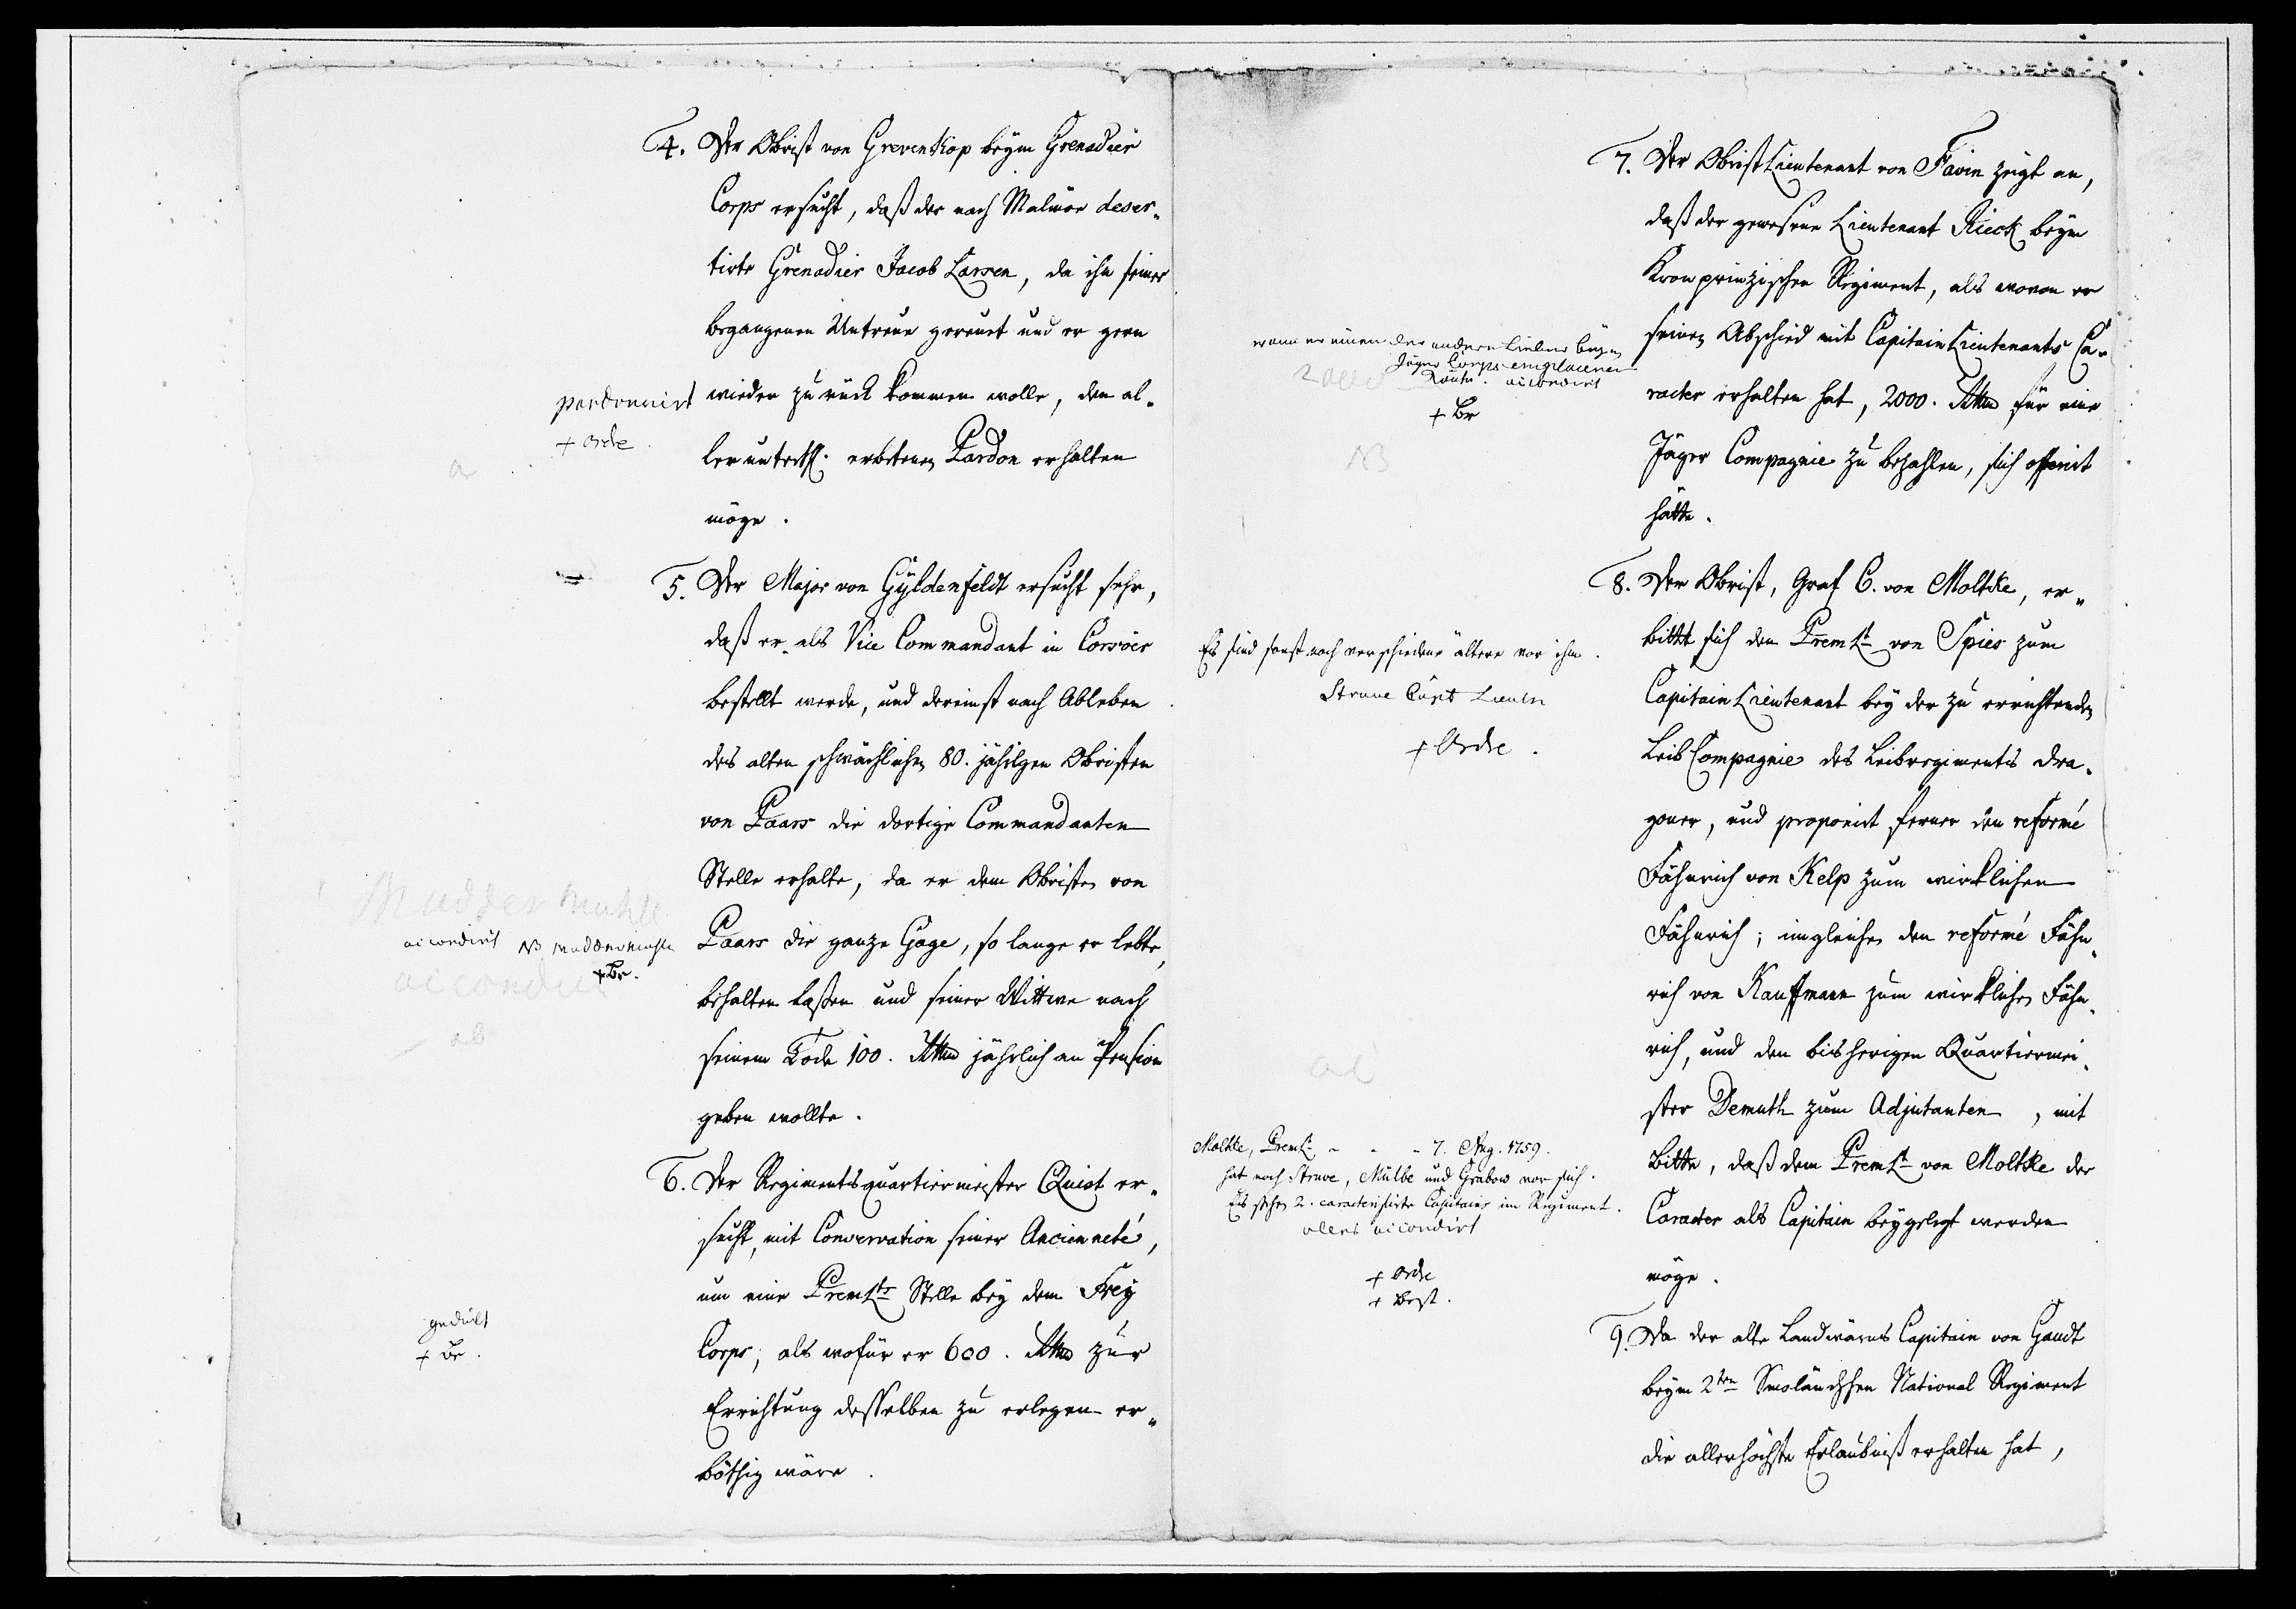 4. Der Obrist von Grevenkop beym Grenadier
Corps ersucht, daß der nach Malmoe deser-
tirte Grenadier Jacob Larsen, da ihn seiner
begangenen Untreue gereuet und er gern
wieder zurück kommen wolle, den al-
lerunterth. erbetenen Pardon erhalten
möge.
pardonnirt
+ Ordre
a
5. Der Major von Gyldenfeldt ersucht sehr,
daß er als Vice Commandant in Corsöer
bestellt werde, und dereinst nach Ableben
des alten schwächlichen 80. jährigen Obristen
von Paars die dortige Commandanten
Stelle erhalte, da er dem Obristen von
Paars die ganze Gage, so lange er lebte,
behalten laßen und seiner Wittwe nach
seinem Tode 100. Rthlr jährlich an Pension
geben wollte.
accordirt NB
+ Br.
accordirt
6. Der Regimentsquartiermeister Quist er-
sucht, mit Conservation seiner Ancienneté,
um eine PremLts Stelle bey dem Frey
Corps, als wofür er 600. Rthlr zur
Errichtung desselben zu erlegen er-
böthig wäre.
gedult
+ Br.
7. Der ObristLieutenant von Favin zeigt an,
daß der gewesene Lieutenant Rieck beym
Kronprinzischen Regiment, als wovon er
seinen Abschied mit CapitainLieutenants Ca-
racter erhalten hat, 2000. Rthlr für eine
Jäger Compagnie zu bezahlen, sich offerirt
hätte.
wann er einen der andern Lieutn beym
Jäger Corps emplacieren
könte. accordirt
+ Br
NB
8. Der Obrist, Graf C. von Moltke, er-
bittet sich den PremLt von Spies zum
CapitainLieutenant bey der zu errichtenden
LeibCompagnie des Leibregiments Dra-
goner, und proponirt ferner den reformé
Fähnrich von Kelp zum wirklichen
Fähnrich; imgleichen den reformé Fähn-
rich von Kauffmann zum wirklichen Fähn-
rich, und den bisherigen Quartiermei-
ster Demuth zum Adjutanten, mit
Bitte, daß dem PremLt von Moltke der
Caracter als Capitain beygelegt werden
möge.
Es sind sonst noch verschiedene ältere vor ihm.
Struve Capt Lieutn
+ Ordre.
Moltke, PremLt - - - 7. Aug. 1759.
hat noch Struve, Mülbe und Grabow vor sich.
Es stehen 2. caracterisirte Capitains im Regiment.
alles accordirt
+ Ordre
+ Best.
9. Da der alte Landwärns Capitain von Gaudt
beym 2ten Smoländschen National Regiment
die allerhöchste Erlaubniß erhalten hat,